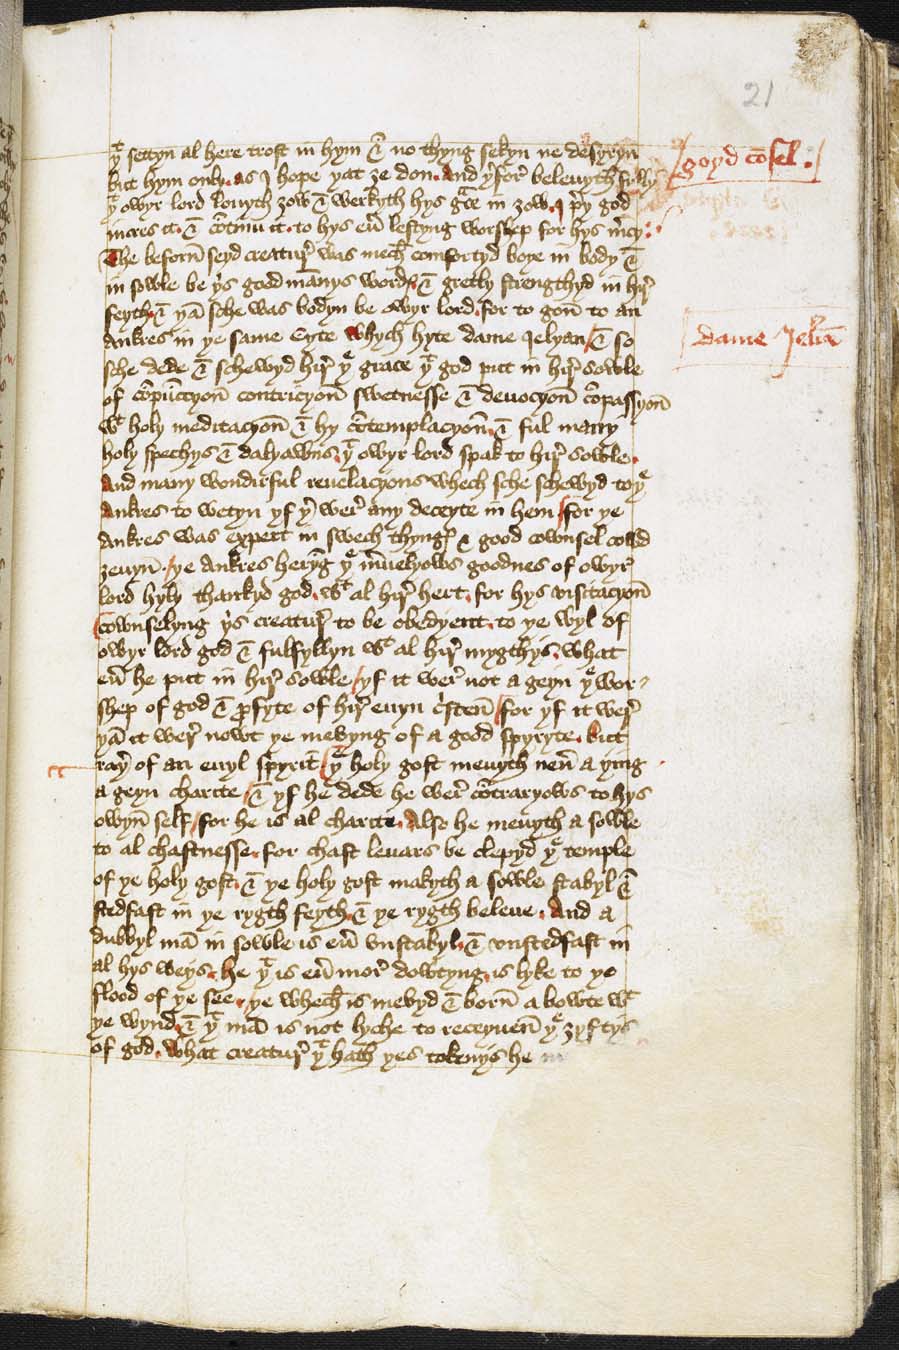 21
yt settyn al here trost in hym & no thyng sekyn ne desyryn
but hym only. as I hope yat ze don. And yerfor beleuyth fully
yt owyr lord louyth zow & werkyth hys grace in zow. I prey god
incres it. & cōtinu it. to hys eu̅ lestyng worshep for hys mercy.
goyd cōsel.
The beforn̄ seyd creatur̄ was mech̄ comfortyd boye in body &
in sowle be ys good mannys wordys. & gretly strengthyd in hir̄
feyth. & yā sche was bodyn be owyr lord. for to gon̄ to an
ankres in ye same Cyte whych hyte dame Ielyan / & so
dame Ielian
sche dede & schewyd hir̄ ye grace yt god put in hir̄ sowle
of cōpūccyon̄ contricyon̄ swetnesse & deuocyon̄ cōpassyon̄
wt holy meditacyon̄ & hy cōtemplacyon̄. & ful many
holy spechys & dalyawns. yt owyr lord spak to hir̄ sowle.
And many wondirful reuelacyons whech sche schewyd to ye
ankres to wetyn yf yer wer̄ any deceyte in hem / for ye
ankres was expert in swech thyngys & good cownsel cowd
zeuyn. / ye ankres heryng ye mervelyows goodnes of owyr
lord hyly thankyd god. wt al hir̄ hert. for hys visitacyon̄
cownselyng ys creatur̄ to be obedyent. to ye wyl of
owyr lord god & fulfyllyn wt al hir̄ mygthys. what
eu̅ he put in hir̄ sowle / yf it wer̄ not a geyn ye wor
shep of god & profyte of hir̄ euyn cristen̄ / for yf it wer̄
yā it wer̄ nowt ye mevyng of a good spyryte. but
rayer of an euyl spyrit / ye holy gost meuyth neu̅ a ying
a geyn charite / & yf he dede he wer̄ cōtraryows to hys
owyn̄ self / for he is al charite. Also he meuyth a sowle
to al chastnesse. for chast leuars be clepyd ye temple
of ye holy gost. & ye holy gost makyth a sowle stabyl &
stedfast in ye rygth feyth & ye rygth beleue. And a
dubbyl mā in sowle is eu̅ vnstabyl. & vnstedfast in
al hys weys. he yt is eu̅ mor̄ dowtyng. is lyke to ye
flood of ye see. ye whech̄ is mevyd & born̄ a bowte wt
ye wynd. & yt mā is not lyche to receyuen̄ ye zyftys
of god. What creatur̄ yt hath yes tokenys he